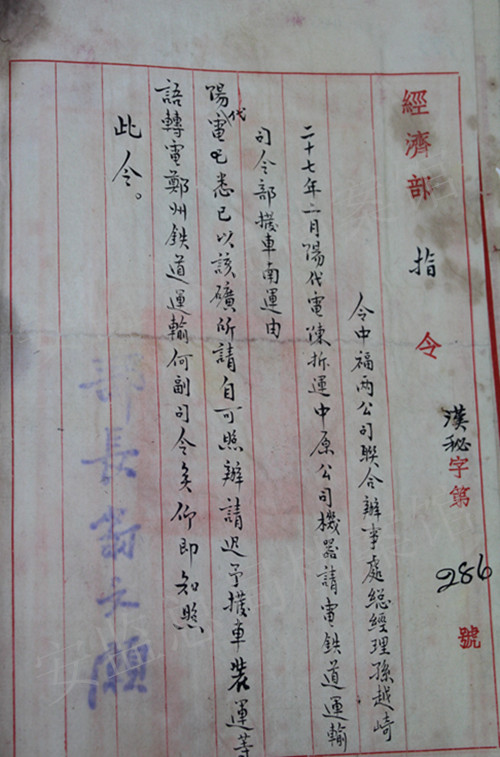 經濟部 指令
漢秘字第286號
令中福兩公司聯合辦事處總經理孫越崎
二十七年二月陽代電陳拆運中原公司機器請電鉄道運輸
司令部撥車南運由
陽代電已悉已以該礦所請自可照辦請迅予撥車裝運等
語轉電鄭州鉄道運輸何副司令矣仰即知照
此令。
部長翁文灝